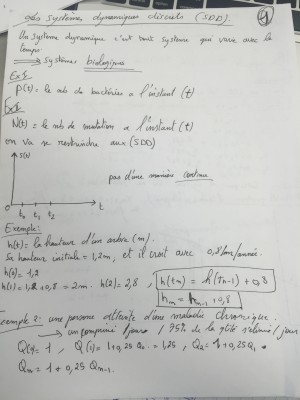 Les Systèmes dynamiques discrets (SDD).
1
Un système dynamique c'est tout système qui varie avec le
temps
⟹ Systèmes biologiques
Ex1:
P(t) = le nb de bactéries a l'instant (t)
Ex2:
N(t) = le nb de mutation a l'instant (t)
on va se restreindre aux (SDD)
S(t)
pas d'une manière continue
0 t₀ t₁ t₂ t
Exemple:
h(t) = la hauteur d'un arbre (m).
Sa hauteur initiale = 1,2m, et il croit avec 0,8m/année.
h(0) = 1,2
h(1) = 1,2 + 0,8 = 2m. h(2) = 2,8, h(tn) = h(tn-1) + 0,8
hn = hn-1 + 0,8
Exemple 2: une personne atteinte d'une maladie chronique.
→ un comprimé / jour, 75% de la qtité s'élimine / jour
Q(0) = 1, Q(1) = 1 + 0,25 Q0 = 1,25, Q2 = 1 + 0,25 Q1
Qn = 1 + 0,25 Qn-1.